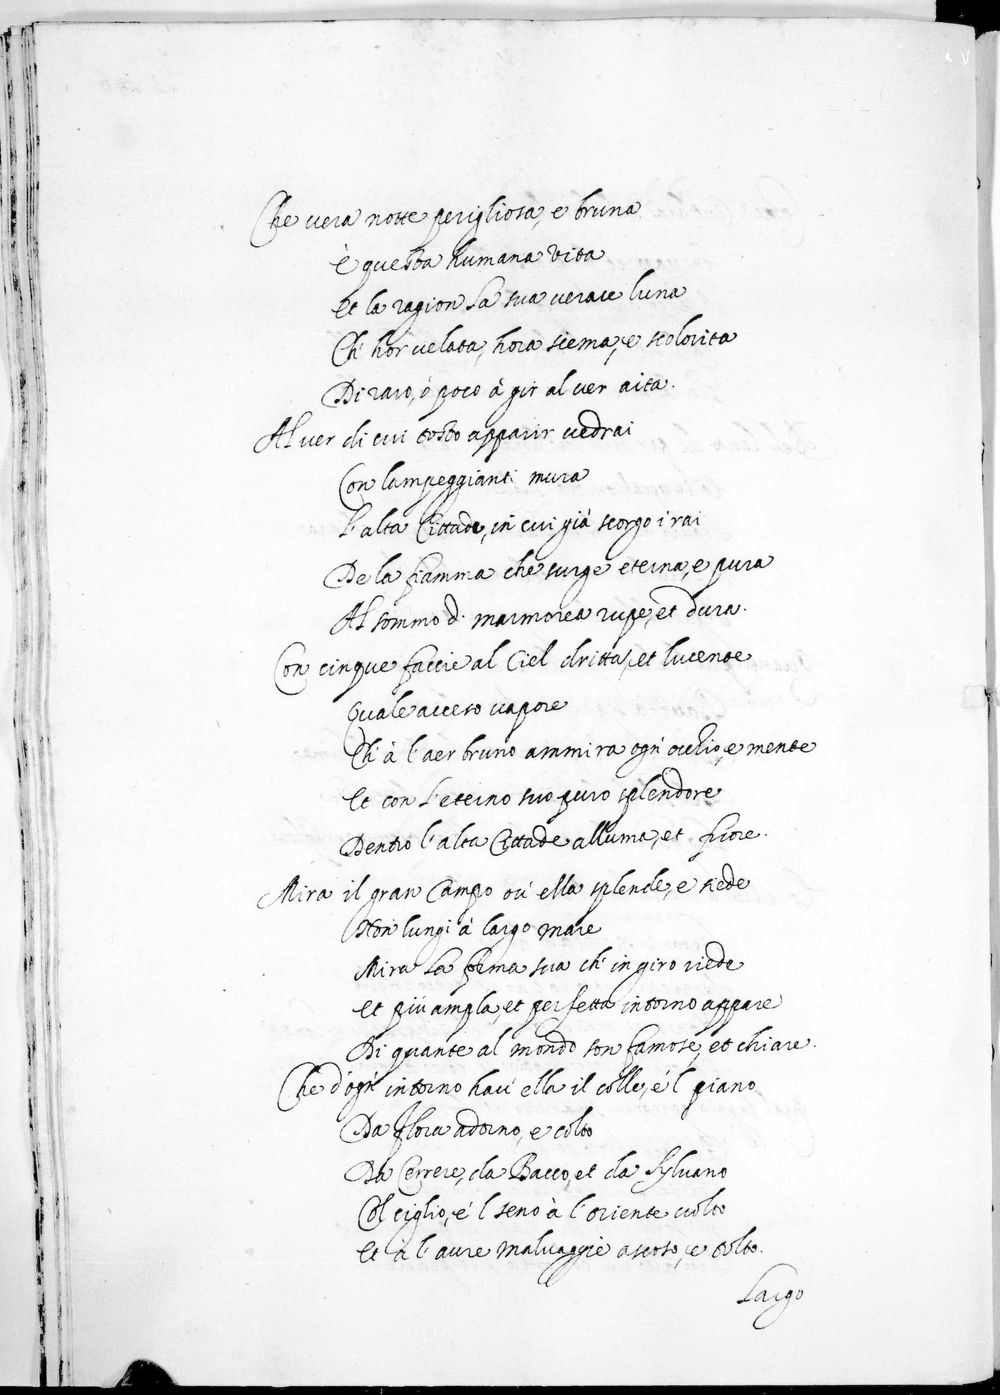 Che vera notte perigliosa, e bruna
È questa humana vita
Et la ragion la sua verace luna
Ch' hor velata, hora scema, e scolorita
Di raro, ò poco à gir al ver aita.
Al ver di cui tosto apparir vedrai
Con lampeggianti mura
L'alta Cittade, in cui già scorgo i rai
De la fiamma che surge eterna, e pura
Al sommo d' marmorea rupe, et dura.
Con cinque faccie al Ciel dritta, et lucente
Quale acceso vapore
Ch' à l'aer bruno ammira ogn' occhio, e mente
Et con l'eterno suo puro splendore
Dentro l'alta Cittade alluma, et fiore.
Mira il gran Campo ou' ella splende, e siede
Non lungi à largo mare
Mira la forma sua ch' in giro riede
Et più ampla, et perfetta intorno appare
Di quante al mondo son famose, et chiare.
Che d'ogn' intorno hau' ella il colle, e'l piano
Da flora adorno, e colto
Da Cerrere, da Bacco, et da Sylvano
Col ciglio, e'l seno à l'oriente volto
Et à l'aure malvaggie ascoso, e tolto.
Largo